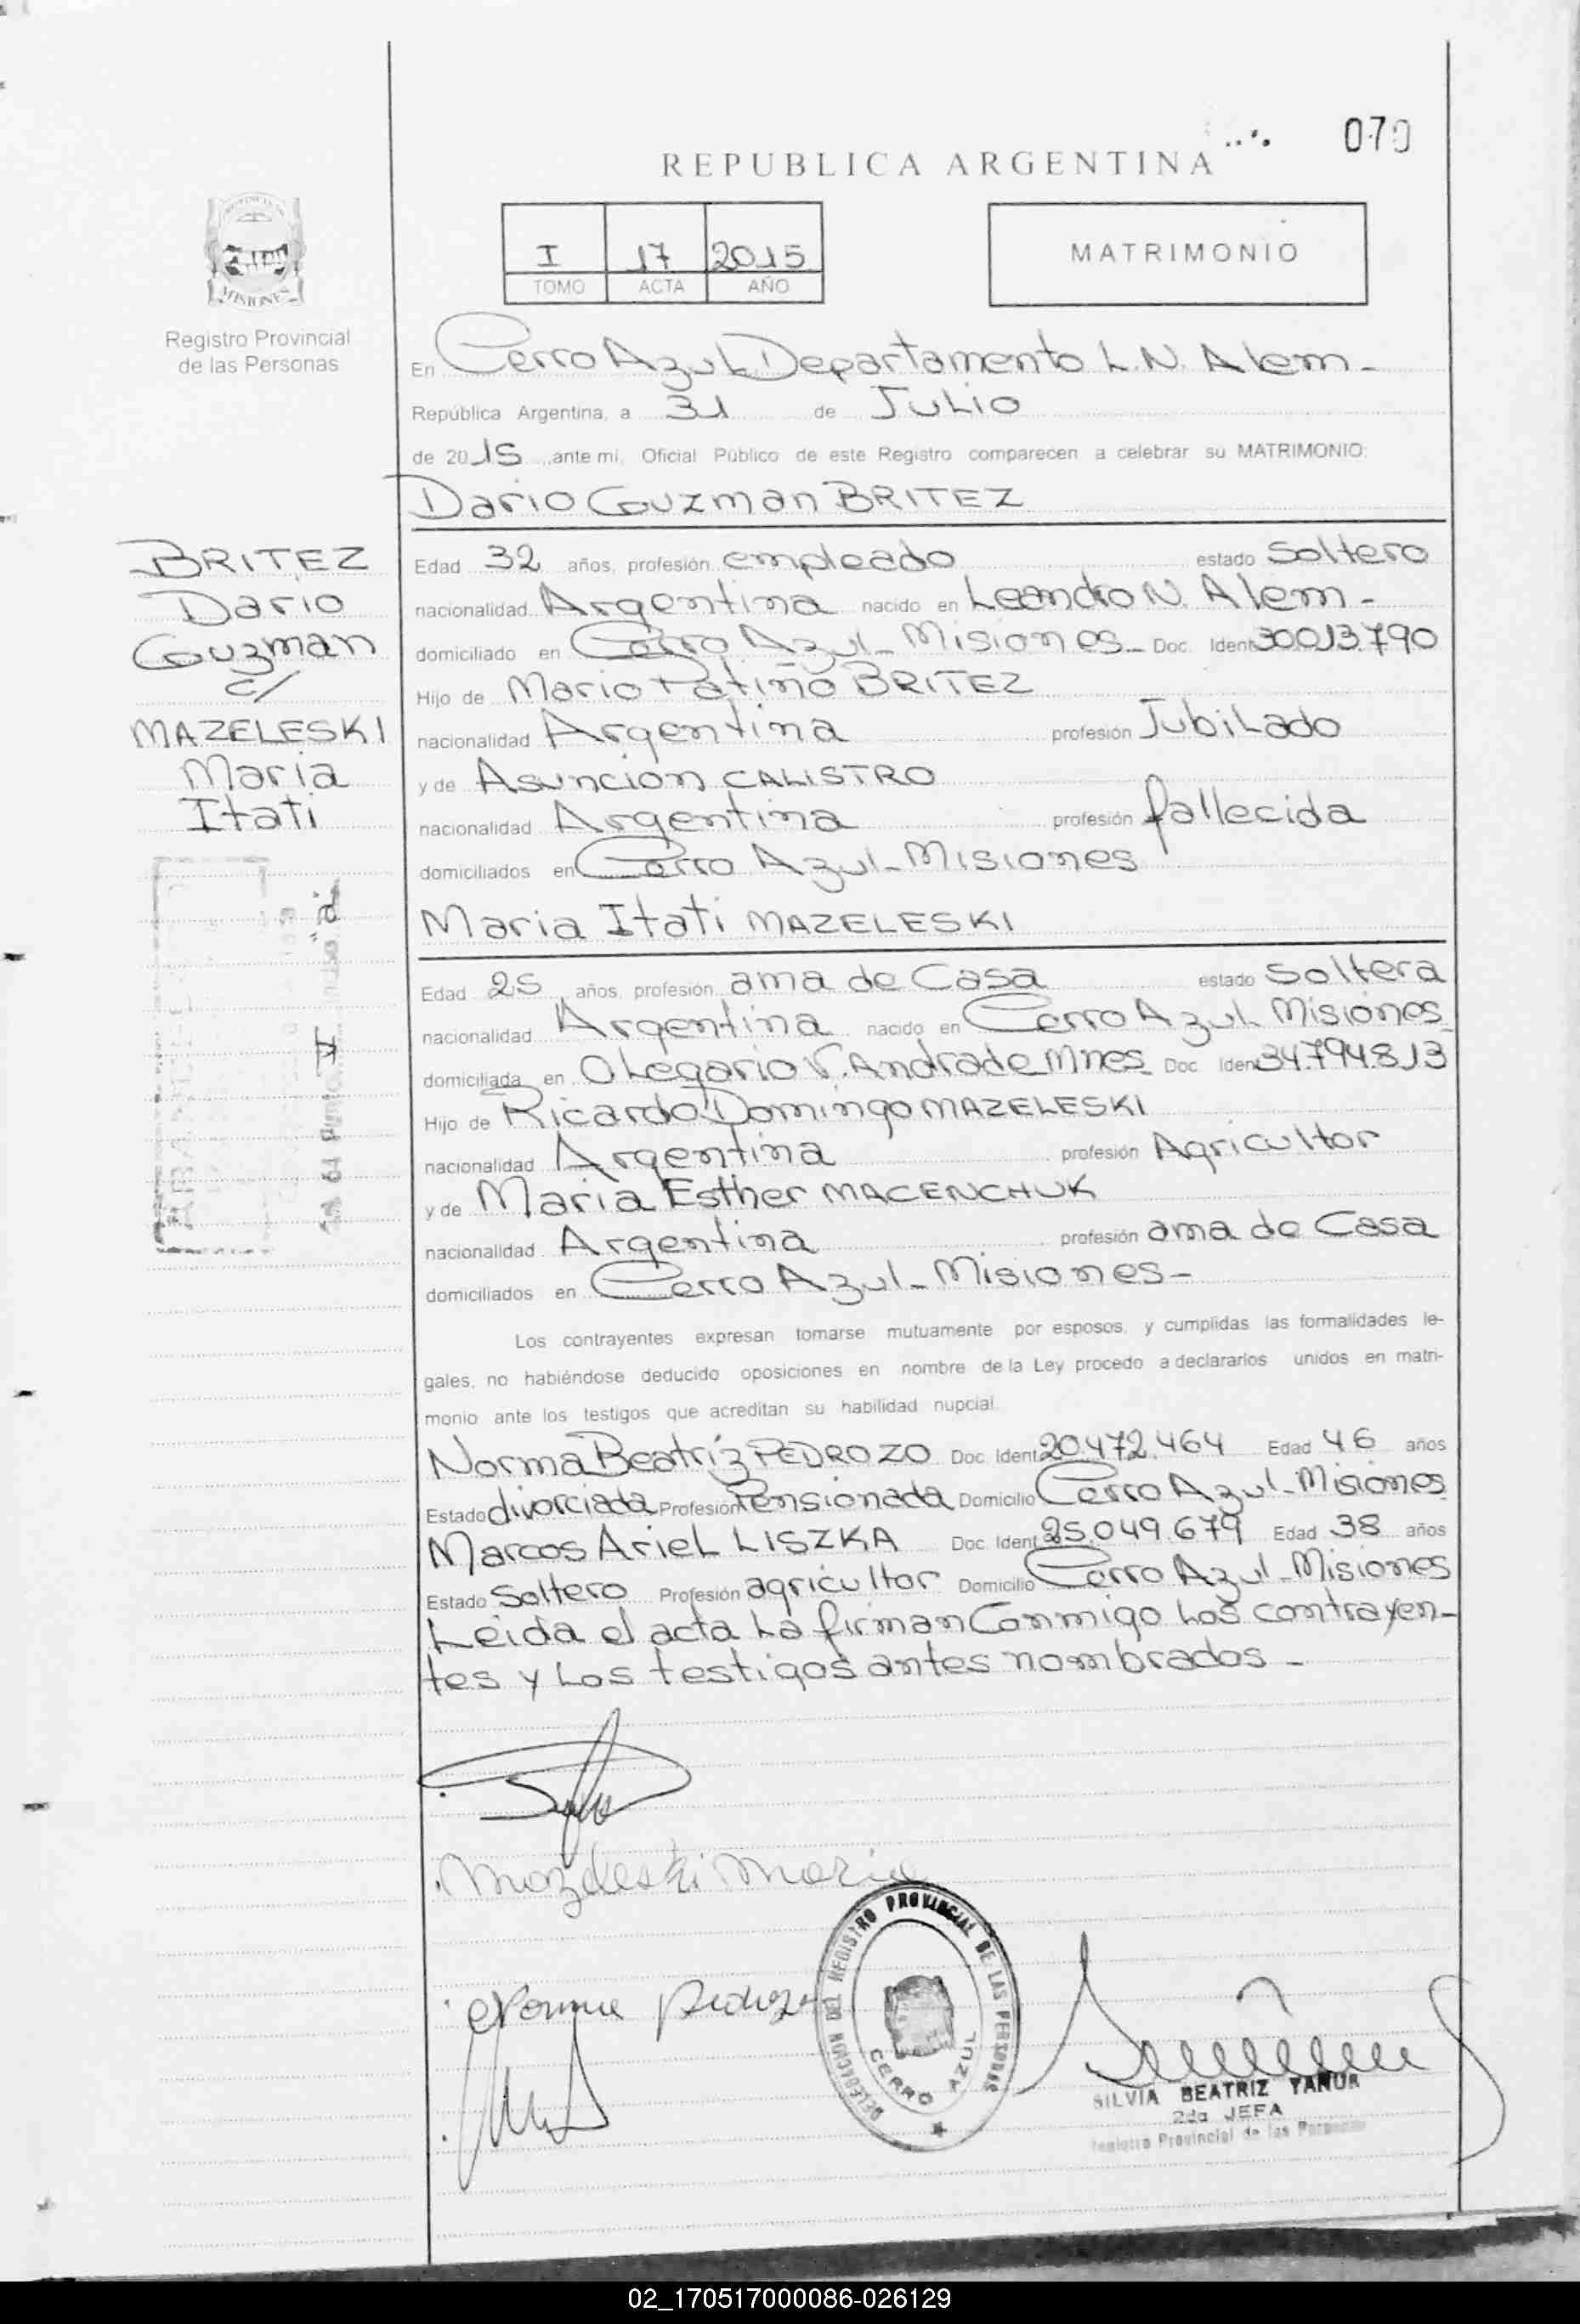 070
REPUBLICA ARGENTINA
I 17 2015
TOMO ACTA AÑO
MATRIMONIO
PROVINCIA DE
MISIONES
Registro Provincial
de las Personas
En Cerro Azul Departamento L.N. Alem-
República Argentina, a 31 de Julio
de 2015 ante mi, Oficial Público de este Registro comparecen a celebrar su MATRIMONIO:
Dario Guzman BRITEZ
BRITEZ
Dario
Guzman
c/
MAZELESKI
Maria
Itati
Edad 32 años, profesión empleado estado Soltero
nacionalidad Argentina nacido en Leandro N. Alem-
domiciliado en Cerro Azul-Misiones- Doc. Ident 30013.790
Hijo de Mario Patiño BRITEZ
nacionalidad Argentina profesión Jubilado
y de Asunción CALISTRO
nacionalidad Argentina profesión fallecida
domiciliados en Cerro Azul-Misiones
Maria Itati MAZELESKI
Edad 25 años, profesión ama de Casa estado Soltera
nacionalidad Argentina nacido en Cerro Azul Misiones
domiciliada en Olegario V. Andrade Mnes Doc. Ident 34.794.813
Hijo de Ricardo Domingo MAZELESKI
nacionalidad Argentina profesión Agricultor
y de Maria Esther MACENCHUK
nacionalidad Argentina profesión ama de Casa
domiciliados en Cerro Azul-Misiones-
Los contrayentes expresan tomarse mutuamente por esposos, y cumplidas las formalidades le-
gales, no habiéndose deducido oposiciones en nombre de la Ley procedo a declararlos unidos en matri-
monio ante los testigos que acreditan su habilidad nupcial.
Norma Beatríz PEDROZO Doc. Ident 20.472.464 Edad 46 años
Estado divorciada Profesión Pensionada Domicilio Cerro Azul-Misiones
Marcos Ariel LISZKA Doc. Ident 25.049.679 Edad 38 años
Estado Soltero Profesión agricultor Domicilio Cerro Azul-Misiones
Leida el acta La firman Conmigo Los contrayen-
tes y Los testigos antes nombrados-
Mazeleski Maria
Norma Pedrozo
DELEGACION DEL REGISTRO PROVINCIAL DE LAS PERSONAS
CERRO AZUL
SILVIA BEATRIZ YANUR
2da JEFA
Registro Provincial de las Personas
02_170517000086-026129